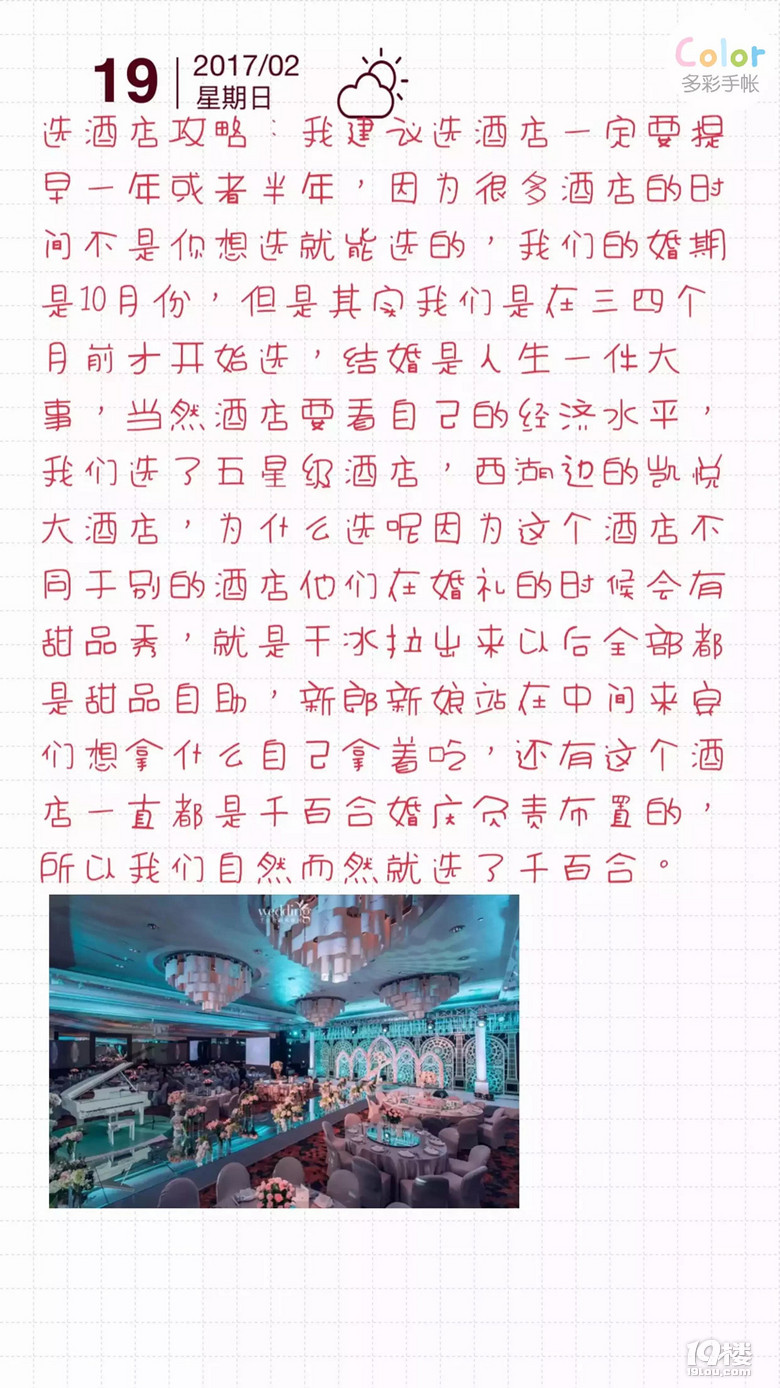 19
2017/02
星期日
Color
多彩手帐
选酒店攻略：我建议选酒店一定要提
早一年或者半年，因为很多酒店的时
间不是你想选就能选的，我们的婚期
是10月份，但是其实我们是在三四个
月前才开始选，结婚是人生一件大
事，当然酒店要看自己的经济水平，
我们选了五星级酒店，西湖边的凯悦
大酒店，为什么选呢因为这个酒店不
同于别的酒店他们在婚礼的时候会有
甜品秀，就是干冰拉出来以后全部都
是甜品自助，新郎新娘站在中间来宾
们想拿什么自己拿着吃，还有这个酒
店一直都是千百合婚庆负责布置的，
所以我们自然而然就选了千百合。
wedding
19楼
19lou.com